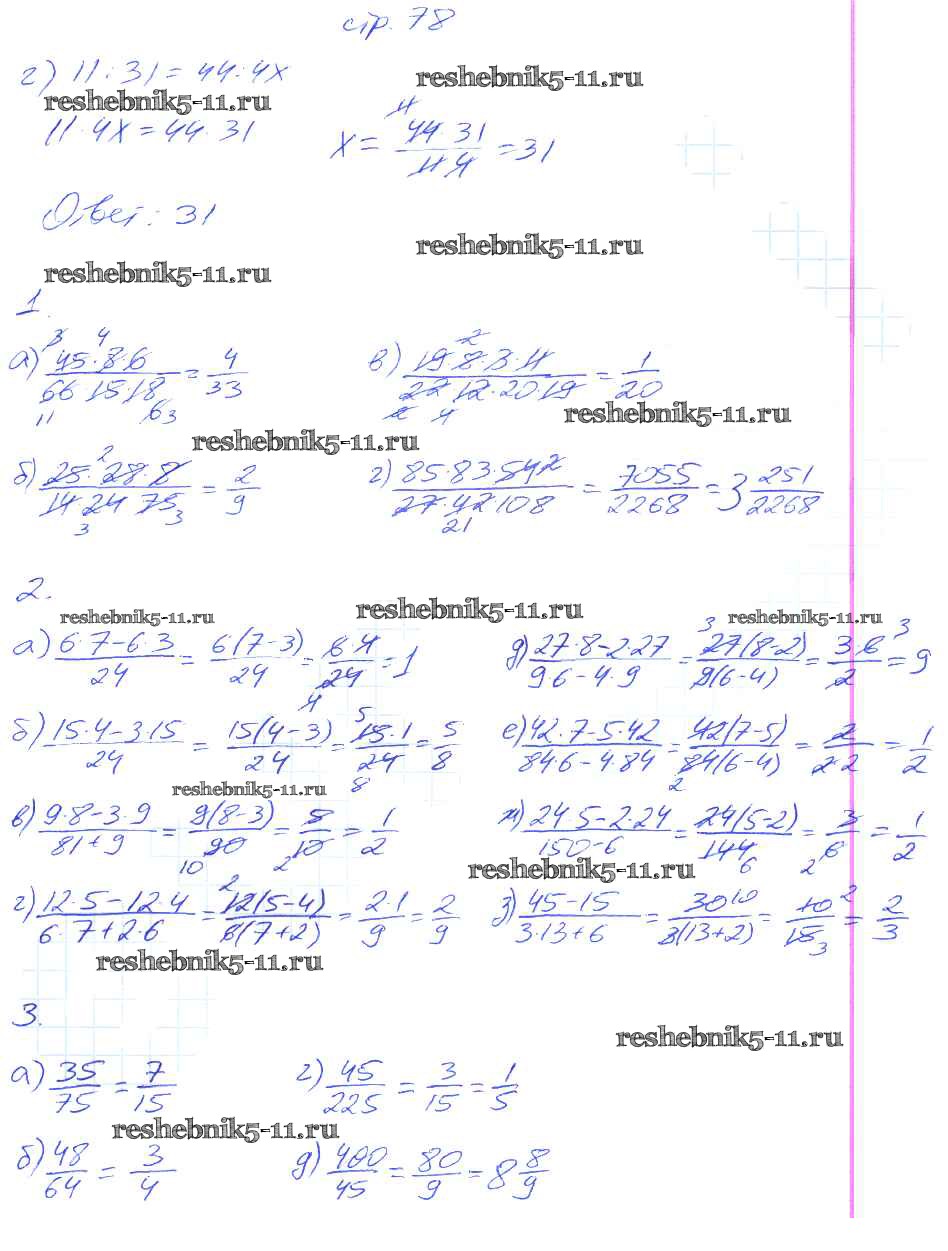 стр. 78
г) 11 : 31 = 44 : 4x
reshebnik5-11.ru
reshebnik5-11.ru
11 · 4x = 44 · 31
x = 44 · 31 / 11 · 4 = 31
Ответ: 31
reshebnik5-11.ru
reshebnik5-11.ru
1.
а) 45 · 8 · 6 / 66 · 15 · 18 = 4/33
в) 19 · 8 · 3 · 11 / 22 · 12 · 20 · 19 = 1/20
reshebnik5-11.ru
reshebnik5-11.ru
б) 25 · 28 · 8 / 14 · 24 · 75 = 2/9
г) 85 · 83 · 54 / 27 · 42 · 108 = 7055/2268 = 3 251/2268
2.
reshebnik5-11.ru
reshebnik5-11.ru
reshebnik5-11.ru
а) 6 · 7 – 6 · 3 / 24 = 6(7 – 3) / 24 = 6 · 4 / 24 = 1
д) 27 · 8 – 2 · 27 / 9 · 6 – 4 · 9 = 27(8 – 2) / 9(6 – 4) = 3 · 6 / 2 = 9
б) 15 · 4 – 3 · 15 / 24 = 15(4 – 3) / 24 = 15 · 1 / 24 = 5/8
е) 42 · 7 – 5 · 42 / 84 · 6 – 4 · 84 = 42(7 – 5) / 84(6 – 4) = 2 / 2 · 2 = 1/2
reshebnik5-11.ru
в) 9 · 8 – 3 · 9 / 81 + 9 = 9(8 – 3) / 90 = 5/10 = 1/2
ж) 24 · 5 – 2 · 24 / 150 – 6 = 24(5 – 2) / 144 = 3/6 = 1/2
reshebnik5-11.ru
г) 12 · 5 – 12 · 4 / 6 · 7 + 2 · 6 = 12(5 – 4) / 6(7 + 2) = 2 · 1 / 9 = 2/9
з) 45 – 15 / 3 · 13 + 6 = 30 / 3(13 + 2) = 10/15 = 2/3
reshebnik5-11.ru
3.
reshebnik5-11.ru
а) 35/75 = 7/15
г) 45/225 = 3/15 = 1/5
reshebnik5-11.ru
б) 48/64 = 3/4
д) 400/45 = 80/9 = 8 8/9